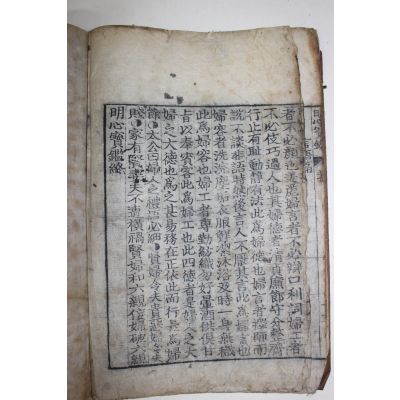 者不必顔色美麗婦言者不必辯口利詞婦工者
不必伎巧過人也其婦德者清貞廉節守分整齊
行止有恥動靜有法此爲婦德也婦言者擇師而
說不談非禮時然後言人不厭其言此爲婦言也
婦容者洗浣塵垢衣服鮮潔沐浴及時一身無穢
此爲婦容也婦工者專勤紡織勿好暈酒供俱甘
旨以奉賓客此爲婦工也此四德者是婦人之大
婦之大德也爲之甚易務在正依此而行是爲婦
節太公曰婦人之禮語必細賢婦令夫貴惡婦令夫
賤家有賢妻夫不遭橫禍賢婦和六親佞婦破六親
明心寶鑑終